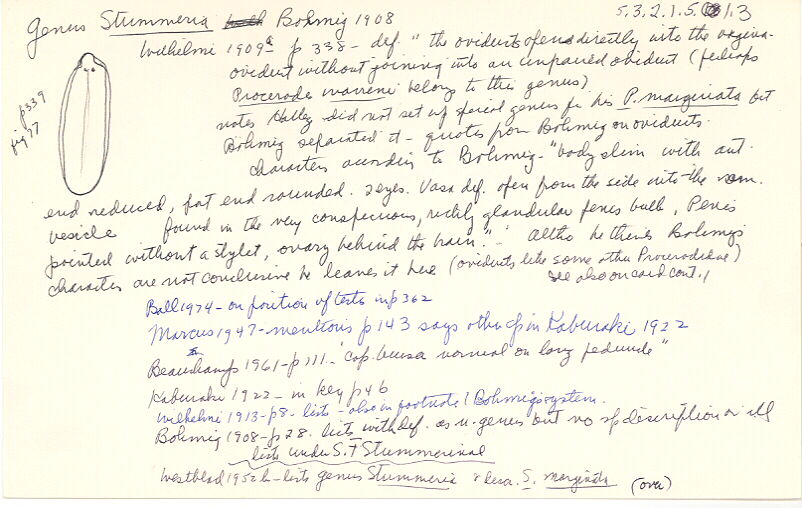 5.3.2.1.5.13
Genus Stummeria Bohmig 1908
Wilhelmi 1909a p 338 - def. "the oviducts opens directly into the vagina-
oviduct without joining into an unpaired oviduct (perhaps
Procerodes warreni belongs to this genus)
notes Halley did not set up special genus for his P. marginata but
Bohmig separated it - quotes from Bohmig on oviducts.
p 339
fig 77
Characters according to Bohmig - "body slim with ant.
end reduced, post end rounded. 2 eyes. Vasa def. open from the side into the sem.
vesicle found in the very conspicuous, richly glandular penis bulb, Penis
pointed without a stylet, ovary behind the brain." Altho he thinks Bohmigs
character are not conclusive he leaves it here (oviducts like some other Procerodidae)
see also on card cont.
Ball 1974 - on position of testes in p 362
Marcus 1947 - mentions p 143 says other sp in Kaburaki 1922
Beauchamp 1961 - p 111 - "cop. bursa normal on long peduncle"
Kaburaki 1922 - in key p 46
Wilhelmi 1913 - p 8 - lists - also in footnote 1 Bohmig's system.
Bohmig 1908 - p 28. lists with def. as n. genus but no sp description or ill
lists under S.F Stummerinae
Westblad 1952 b - lists genus Stummeria & desc. S. marginata (over)